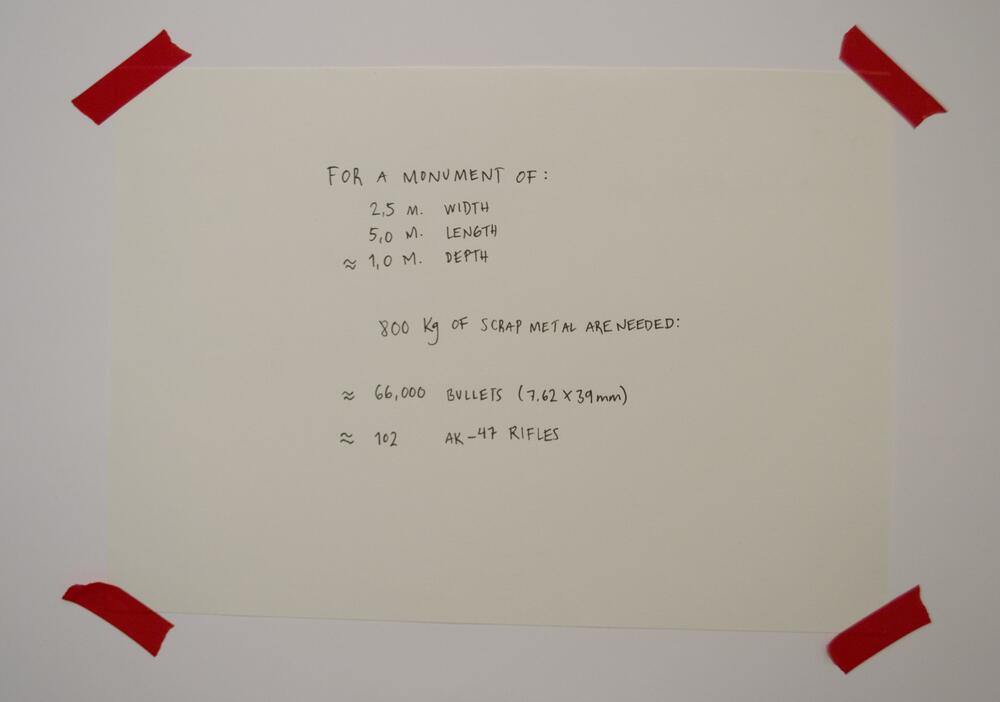 FOR A MONUMENT OF:
2,5 M. WIDTH
5,0 M. LENGTH
≈ 1,0 M. DEPTH
800 Kg OF SCRAP METAL ARE NEEDED:
≈ 66,000 BULLETS (7.62 X 39mm)
≈ 102 AK-47 RIFLES